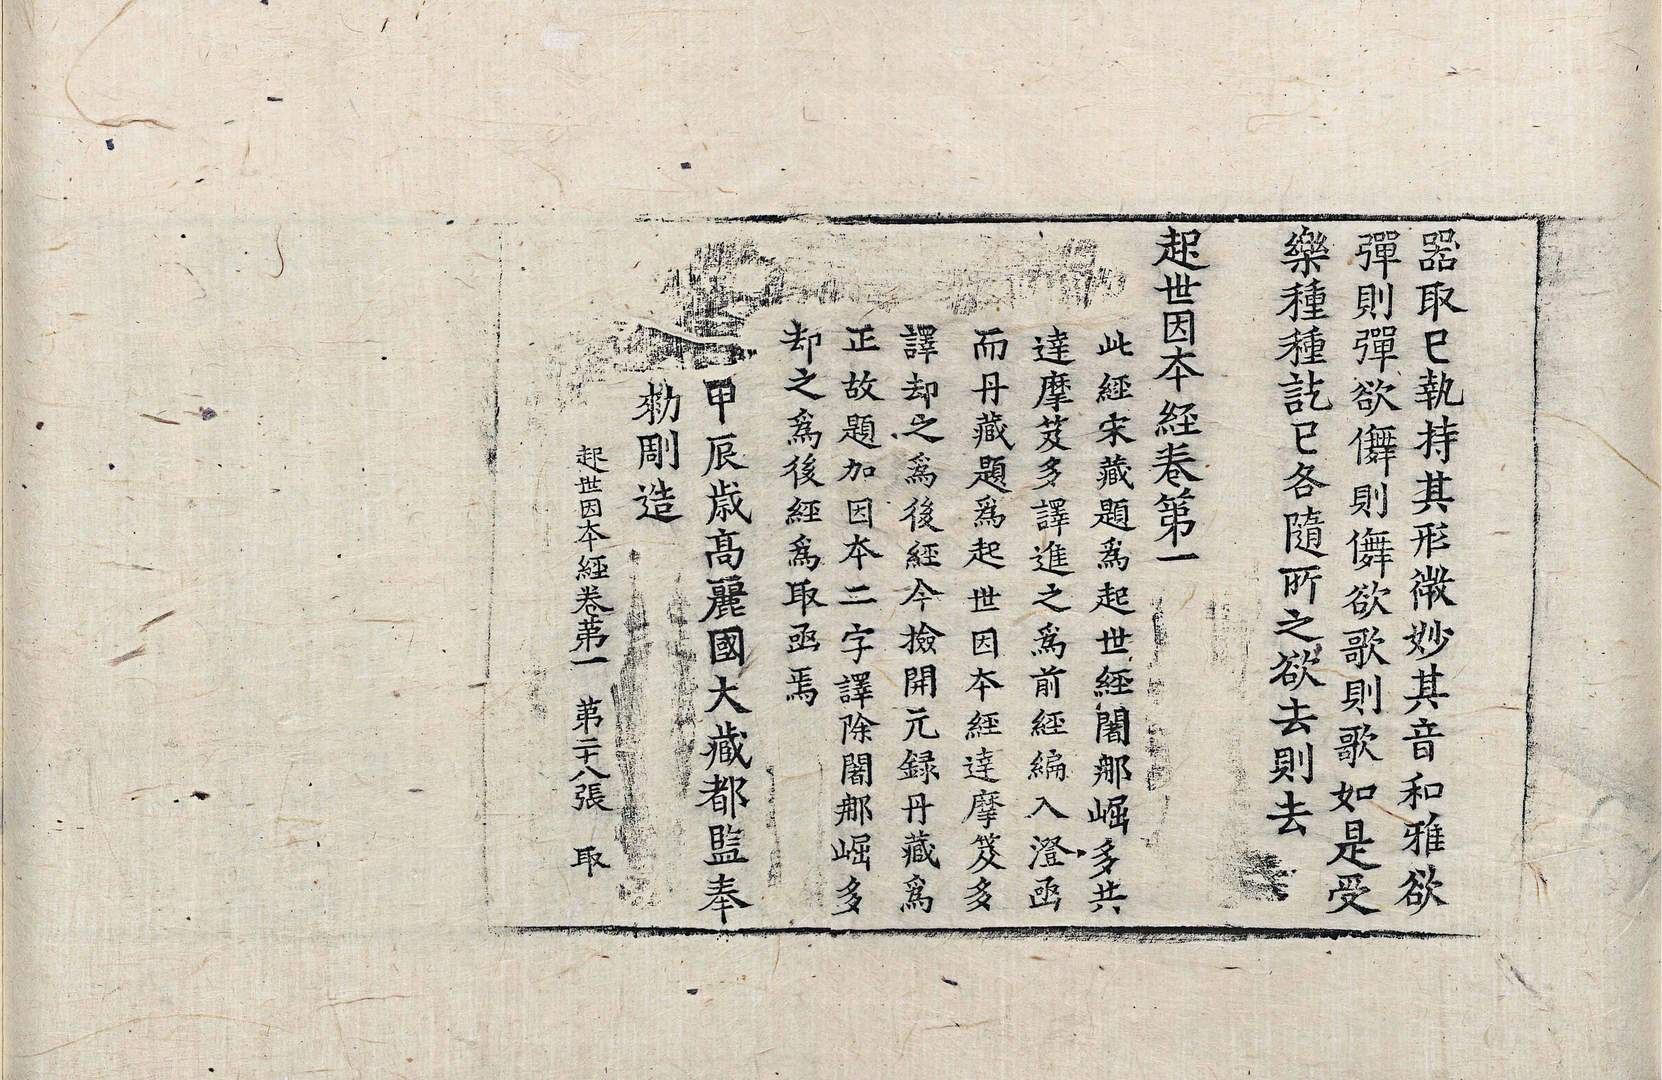 器取已執持其形微妙其音和雅欲
彈則彈欲儛則儛欲歌則歌如是受
樂種種訖已各隨所之欲去則去
起世因本經卷第一
此經宋藏題爲起世經闍那崛多共
達摩笈多譯進之爲前經編入澄函
而丹藏題爲起世因本經達摩笈多
譯却之爲後經今撿開元録丹藏爲
正故題加因本二字譯除闍那崛多
却之爲後經爲取函焉
甲辰歲高麗國大藏都監奉
勅彫造
起世因本經卷第一 第二十八張 取